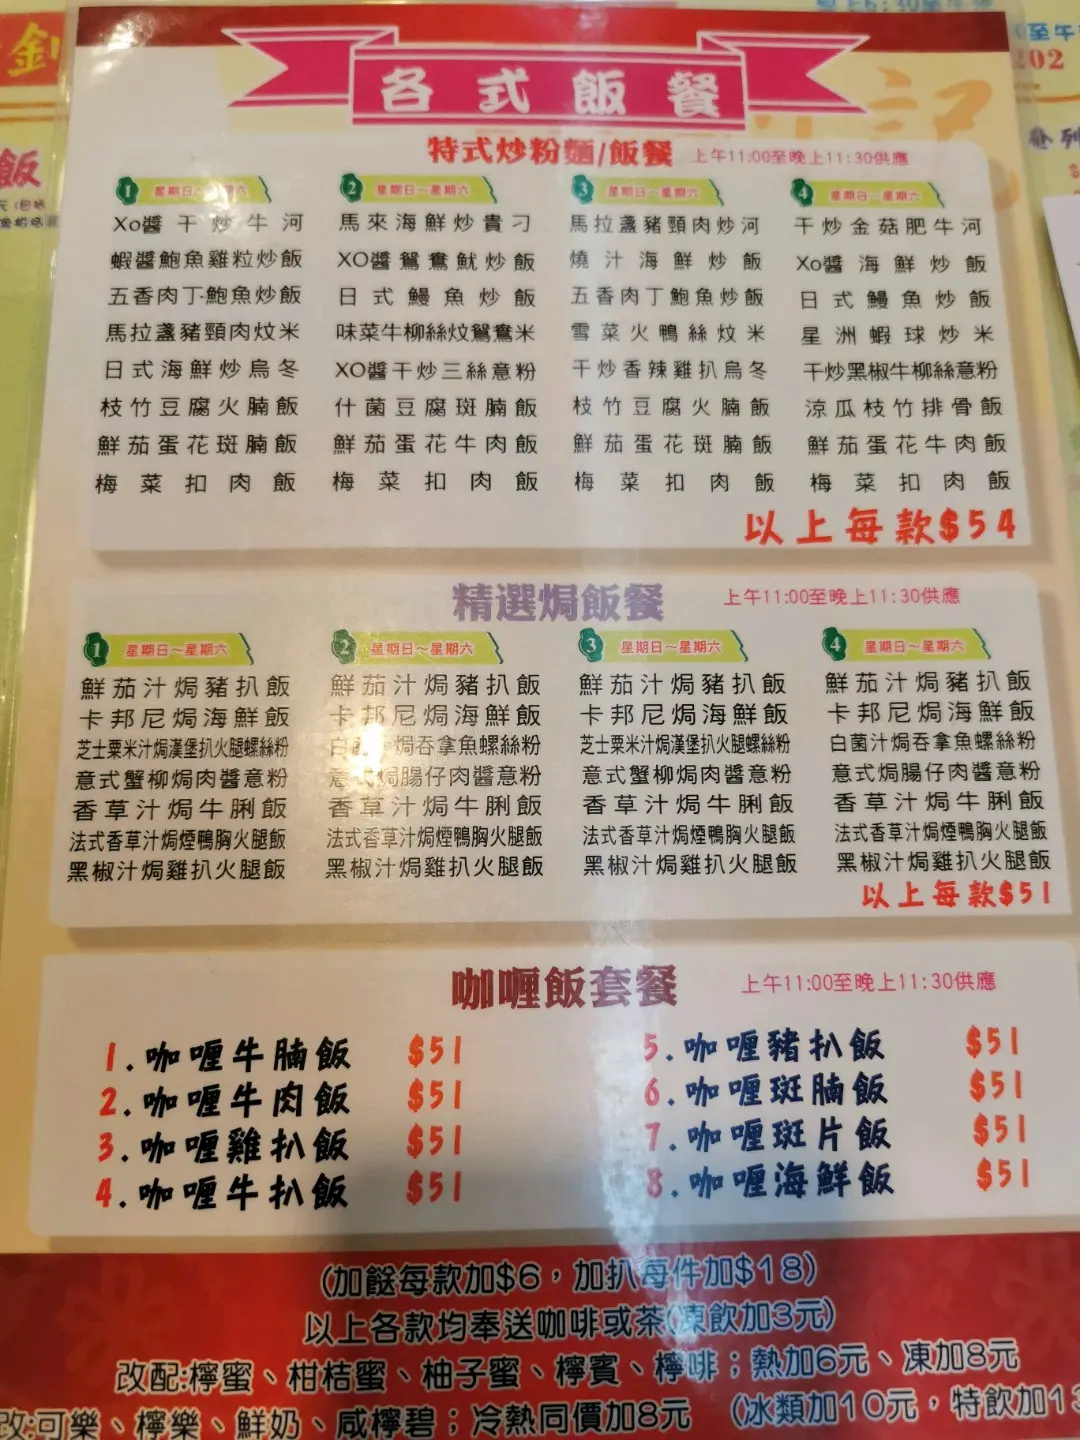 各式飯餐
特式炒粉麵/飯餐 上午11:00至晚上11:30供應
1 星期日~星期六
Xo醬干炒牛河
蝦醬鮑魚雞粒炒飯
五香肉丁鮑魚炒飯
馬拉盞豬頸肉炆米
日式海鮮炒烏冬
枝竹豆腐火腩飯
鮮茄蛋花斑腩飯
梅菜扣肉飯
2 星期日~星期六
馬來海鮮炒貴刁
XO醬鴛鴦魷炒飯
日式鰻魚炒飯
味菜牛柳絲炆鴛鴦米
XO醬干炒三絲意粉
什菌豆腐斑腩飯
鮮茄蛋花牛肉飯
梅菜扣肉飯
3 星期日~星期六
馬拉盞豬頸肉炒河
燒汁海鮮炒飯
五香肉丁鮑魚炒飯
雪菜火鴨絲炆米
干炒香辣雞扒烏冬
枝竹豆腐火腩飯
鮮茄蛋花斑腩飯
梅菜扣肉飯
4 星期日~星期六
干炒金菇肥牛河
Xo醬海鮮炒飯
日式鰻魚炒飯
星洲蝦球炒米
干炒黑椒牛柳絲意粉
涼瓜枝竹排骨飯
鮮茄蛋花牛肉飯
梅菜扣肉飯
以上每款$54
精選焗飯餐 上午11:00至晚上11:30供應
1 星期日~星期六
鮮茄汁焗豬扒飯
卡邦尼焗海鮮飯
芝士粟米汁焗漢堡扒火腿螺絲粉
意式蟹柳焗肉醬意粉
香草汁焗牛脷飯
法式香草汁焗煙鴨胸火腿飯
黑椒汁焗雞扒火腿飯
2 星期日~星期六
鮮茄汁焗豬扒飯
卡邦尼焗海鮮飯
白菌 焗吞拿魚螺絲粉
意式焗腸仔肉醬意粉
香草汁焗牛脷飯
法式香草汁焗煙鴨胸火腿飯
黑椒汁焗雞扒火腿飯
3 星期日~星期六
鮮茄汁焗豬扒飯
卡邦尼焗海鮮飯
芝士粟米汁焗漢堡扒火腿螺絲粉
意式蟹柳焗肉醬意粉
香草汁焗牛脷飯
法式香草汁焗煙鴨胸火腿飯
黑椒汁焗雞扒火腿飯
4 星期日~星期六
鮮茄汁焗豬扒飯
卡邦尼焗海鮮飯
白菌汁焗吞拿魚螺絲粉
意式焗腸仔肉醬意粉
香草汁焗牛脷飯
法式香草汁焗煙鴨胸火腿飯
黑椒汁焗雞扒火腿飯
以上每款$51
咖喱飯套餐 上午11:00至晚上11:30供應
1.咖喱牛腩飯 $51
2.咖喱牛肉飯 $51
3.咖喱雞扒飯 $51
4.咖喱牛扒飯 $51
5.咖喱豬扒飯 $51
6.咖喱斑腩飯 $51
7.咖喱斑片飯 $51
8.咖喱海鮮飯 $51
(加餸每款加$6，加扒每件加$18)
以上各款均奉送咖啡或茶(凍飲加3元)
改配:檸蜜、柑桔蜜、柚子蜜、檸賓、檸啡；熱加6元、凍加8元
改:可樂、檸樂、鮮奶、咸檸碧；冷熱同價加8元 (冰類加10元，特飲加13